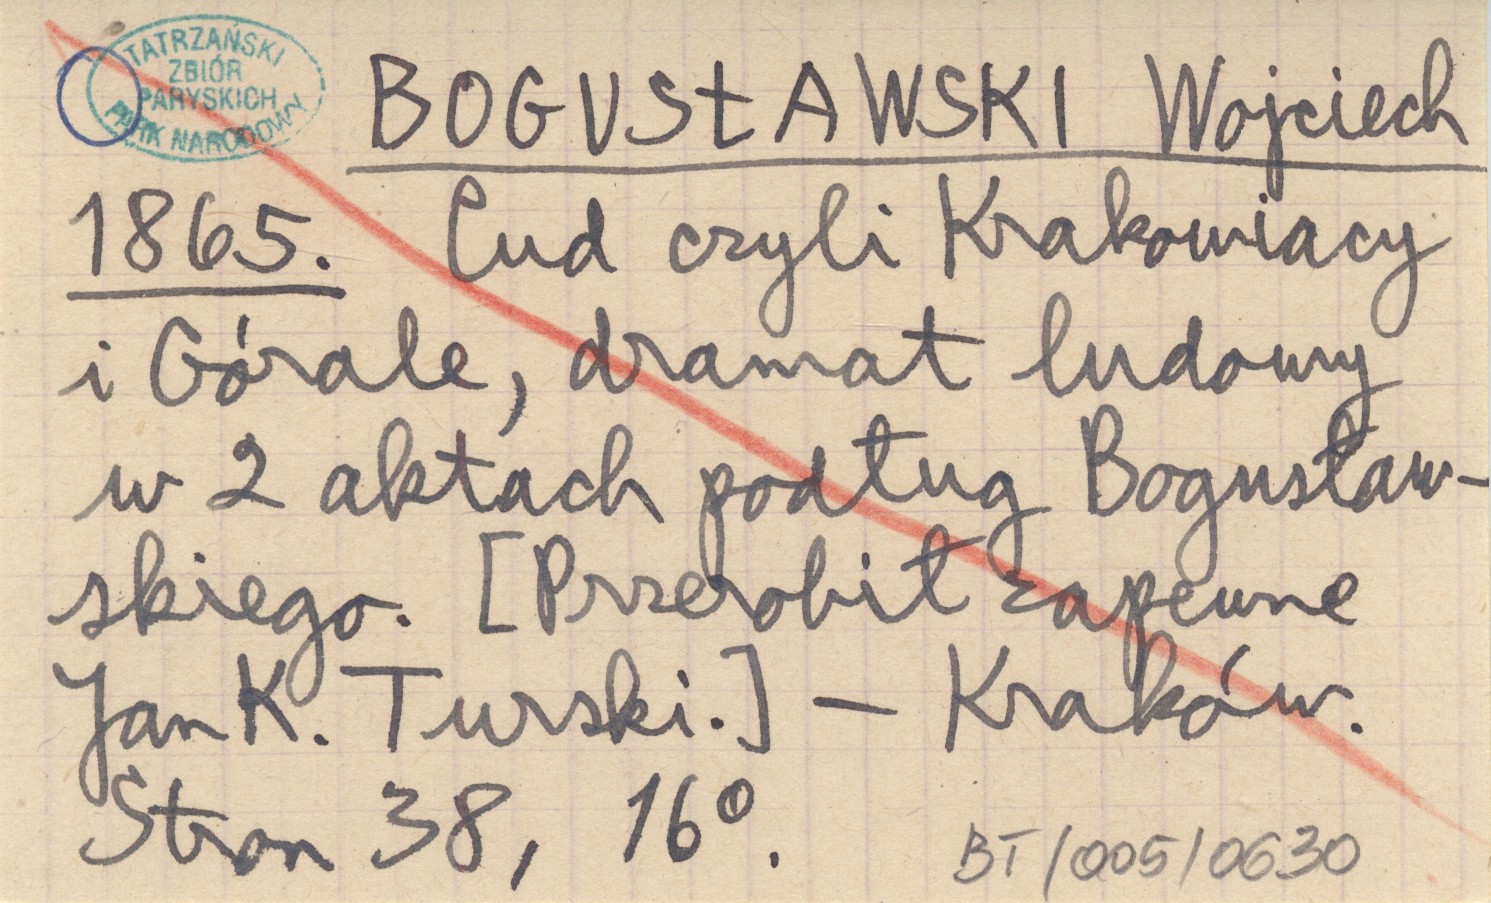 TATRZAŃSKI
ZBIÓR
PARYSKICH
PARK NARODOWY
BOGUSŁAWSKI Wojciech
1865. Cud czyli Krakowiacy
i Górale, dramat ludowy
w 2 aktach podług Bogusław-
skiego. [Przerobił zapewne
Jan K. Turski.] — Kraków.
Stron 38, 16º.
BT/005/0630